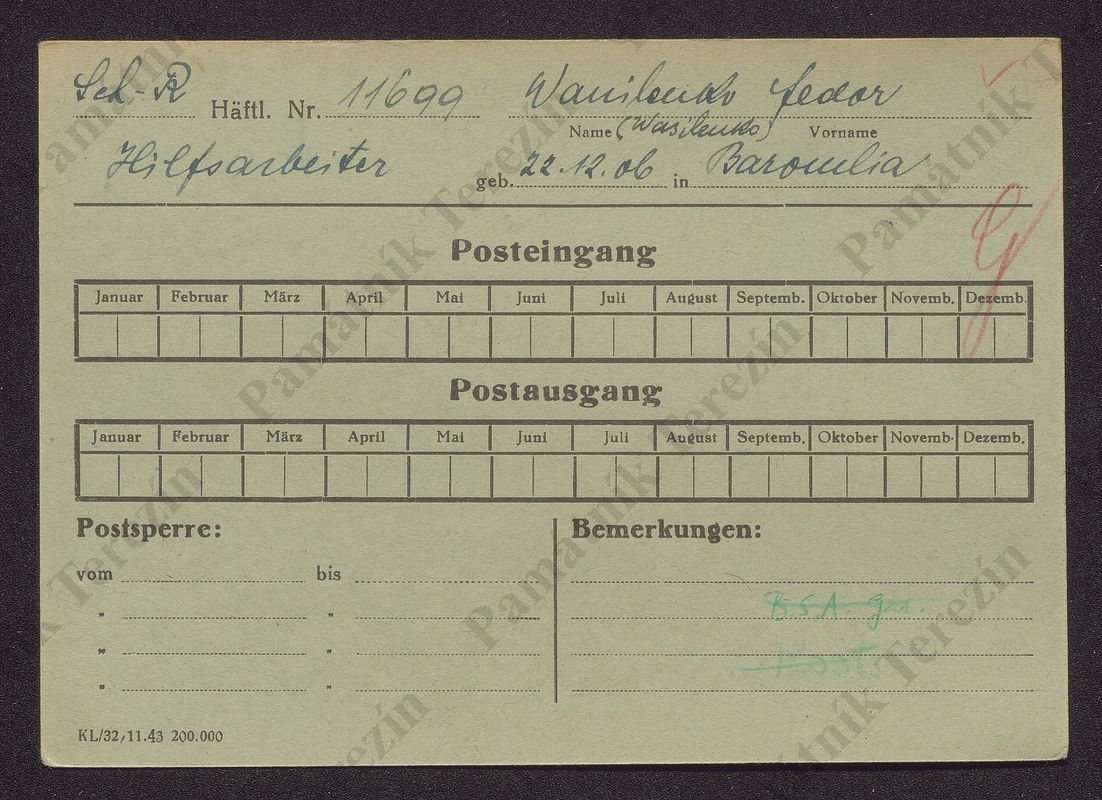 Sch-R Häftl. Nr. 11699 Wanilenko Fedor
Name (Wasilenko) Vorname
Hilfsarbeiter geb. 22.12.06 in Baromlia
G
Posteingang
Januar Februar März April Mai Juni Juli August Septemb. Oktober Novemb. Dezemb.
Postausgang
Januar Februar März April Mai Juni Juli August Septemb. Oktober Novemb. Dezemb.
Postsperre: Bemerkungen:
vom bis
" "
B.S.A.
" "
" "
KL/32/11.43 200.000
Památník Terezín